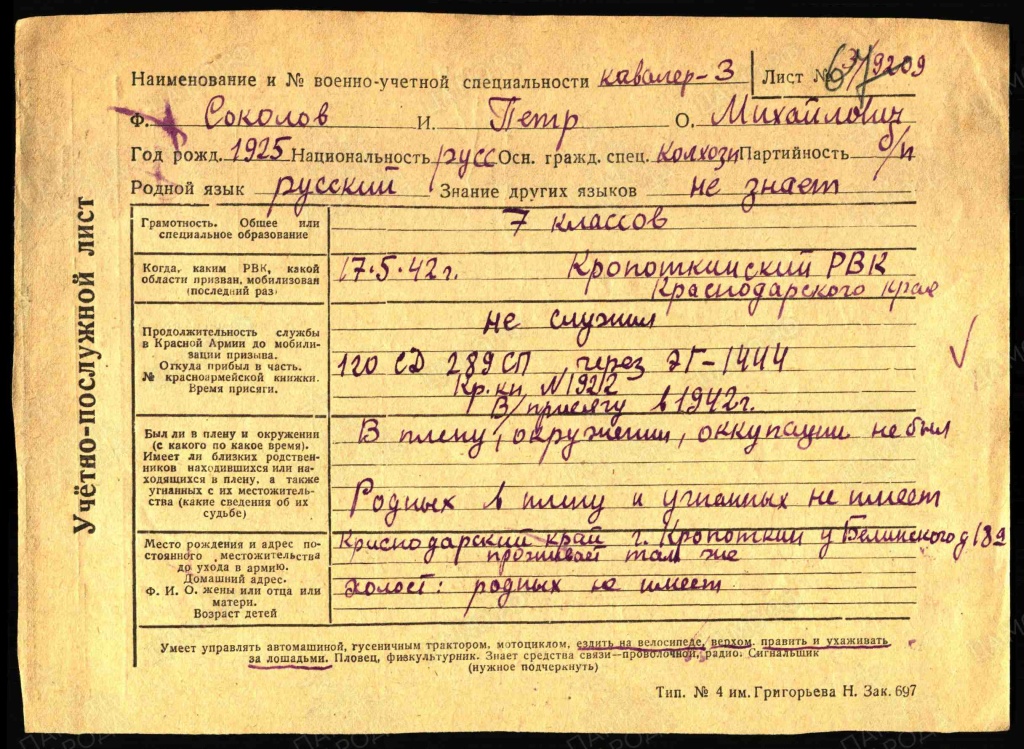 Учётно-послужной лист
Наименование и № военно-учетной специальности кавалер-3 Лист № 9209
Ф. Соколов И. Петр О. Михайлович
Год рожд. 1925 Национальность русс Осн. гражд. спец. колхозн Партийность б/п
Родной язык русский Знание других языков не знает
Грамотность. Общее или
специальное образование
7 классов
Когда, каким РВК, какой
области призван, мобилизован
(последний раз)
17.5.42 г. Кропоткинский РВК
Краснодарского края
Продолжительность службы
в Красной Армии до мобили-
зации призыва.
Откуда прибыл в часть.
№ красноармейской книжки.
Время присяги.
не служил
120 СД 289 СП, через ЭГ-1444
Кр. кн. N 1922
В/присягу в 1942 г.
Был ли в плену и окружении
(с какого по какое время).
Имеет ли близких родствен-
ников находившихся или на-
ходящихся в плену, а также
угнанных с их местожитель-
ства (какие сведения об их
судьбе)
В плену, окружении, оккупации не был
Родных в плену и угнанных не имеет
Место рождения и адрес по-
стоянного местожительства
до ухода в армию.
Домашний адрес.
Ф. И. О. жены или отца или
матери.
Возраст детей
Краснодарский край г. Кропоткин у Белинского д 189
проживает там же
холост: родных не имеет
Умеет управлять автомашиной, гусеничным трактором, мотоциклом, ездить на велосипеде, верхом, править и ухаживать
за лошадьми. Пловец, физкультурник. Знает средства связи—проволочной, радио. Сигнальщик
(нужное подчеркнуть)
Тип. № 4 им. Григорьева Н. Зак. 697